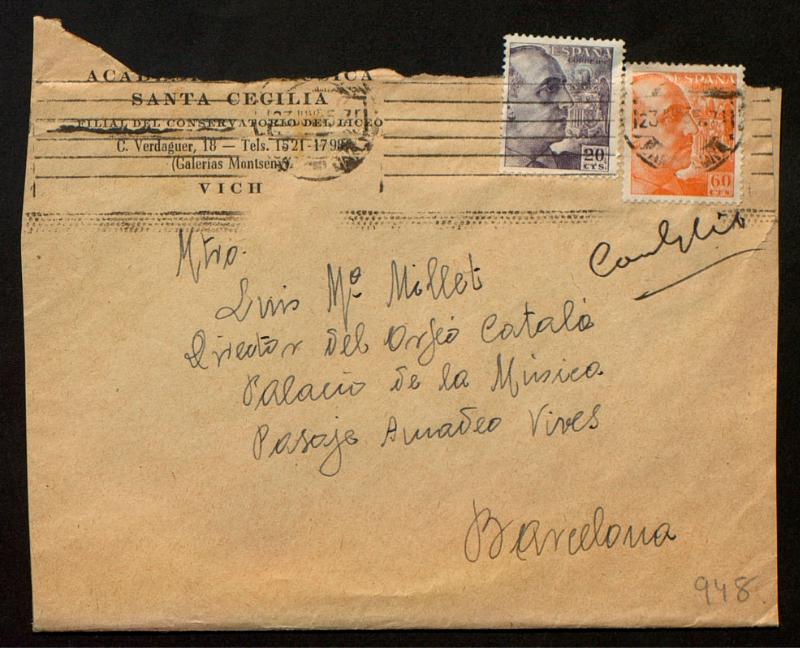 SANTA CECILIA
FILIAL DEL CONSERVATORIO DEL LICEO
C. Verdaguer, 18 — Tels. 1521-1798
(Galerias Montseny)
VICH
ESPAÑA
CORREOS
20
CTS.
ESPAÑA
60
CTS.
Mtro.
Luis Mª Millet
Director del Orfeó Català
Palacio de la Música
Pasaje Amadeo Vives
Barcelona
948